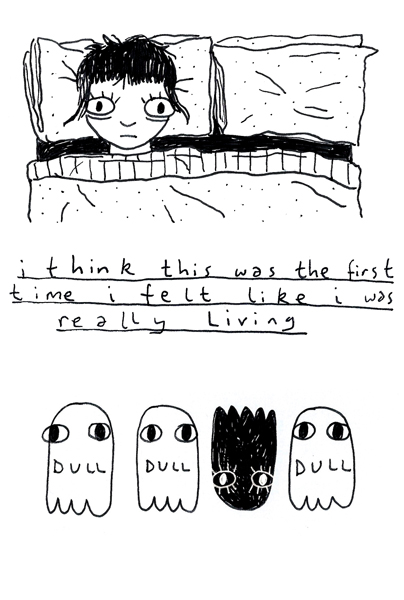 i think this was the first
time i felt like i was
really Living
DULL DULL DULL